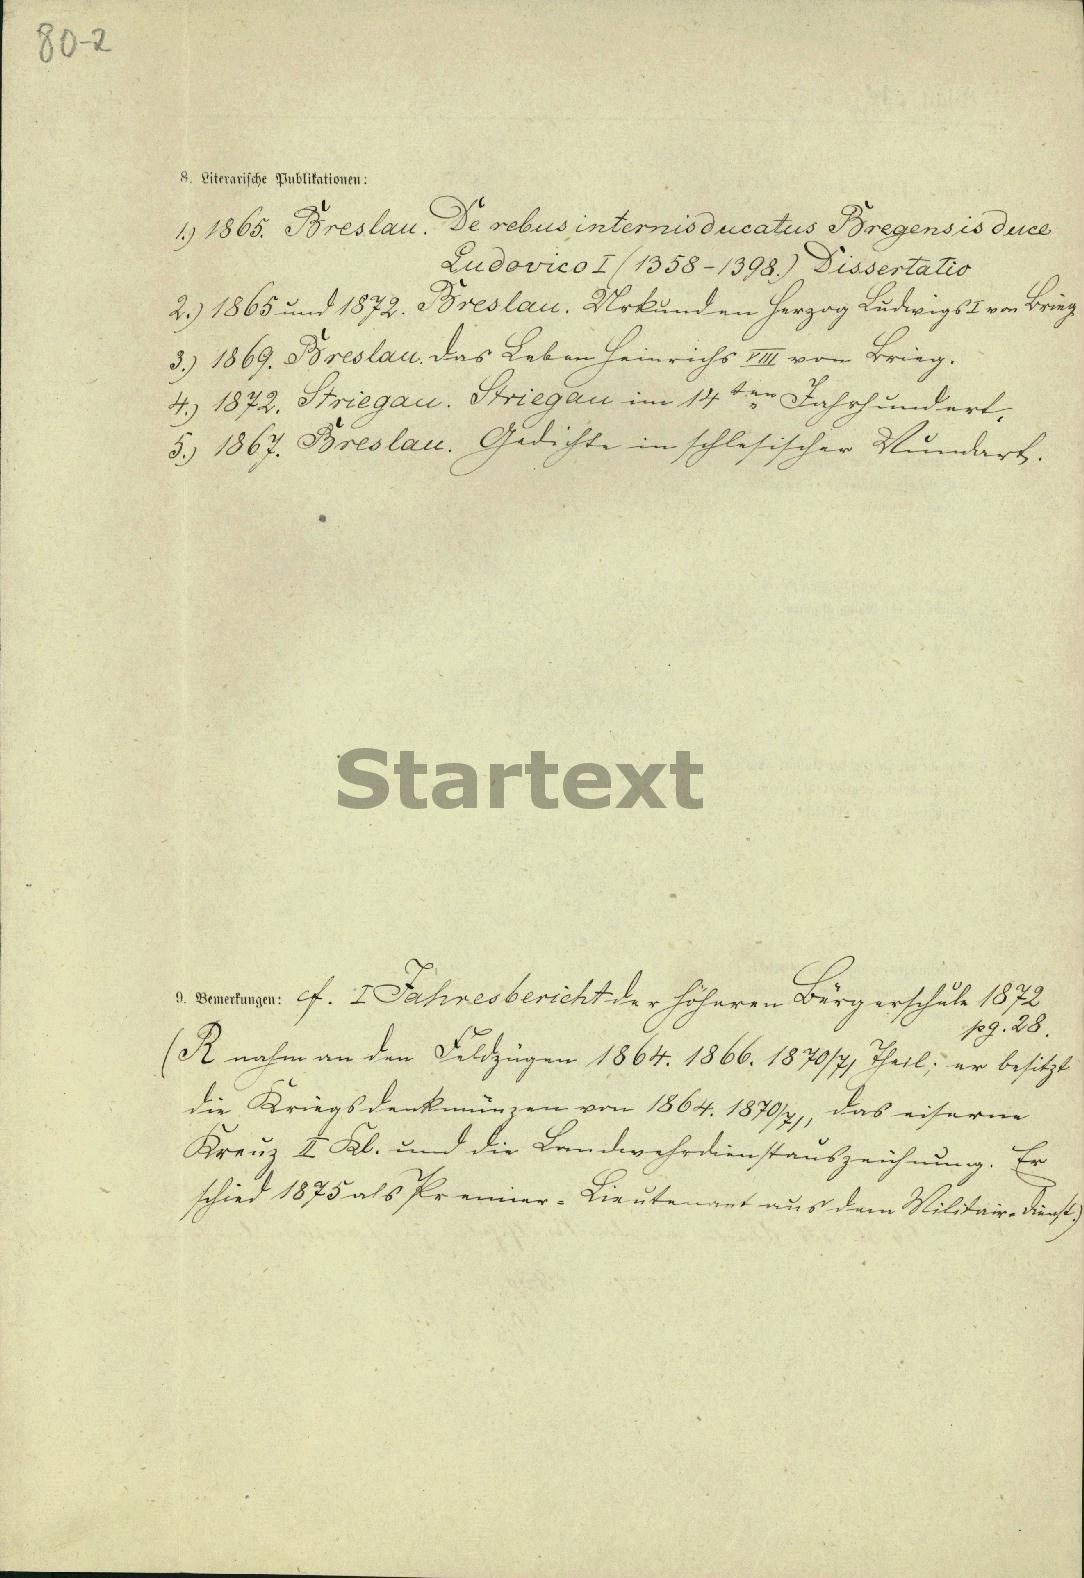 80-2
8. Literarische Publikationen:
1.) 1865. Breslau. De rebus internis ducatus Bregensis duce
Ludovico I (1358-1398.) Dissertatio
2.) 1865 und 1872. Breslau. Urkunden Herzog Ludwigs I von Brieg
3.) 1869. Breslau. das Leben Heinrichs VIII von Brieg.
4.) 1872. Striegau. Striegau im 14ten Jahrhundert.
5.) 1867. Breslau. Gedichte in schlesischer Mundart.
Startext
9. Bemerkungen: cf. I Jahresbericht der höheren Bürgerschule 1872
pg. 28.
(R nahm an den Feldzügen 1864. 1866. 1870/71 Theil; er besitzt
die Kriegsdenkmünzen von 1864. 1870/71, das eiserne
Kreuz II Kl. und die Landwehrdienstauszeichnung. Er
schied 1875 als Premier-Lieutenant aus dem Militair-dienst.)